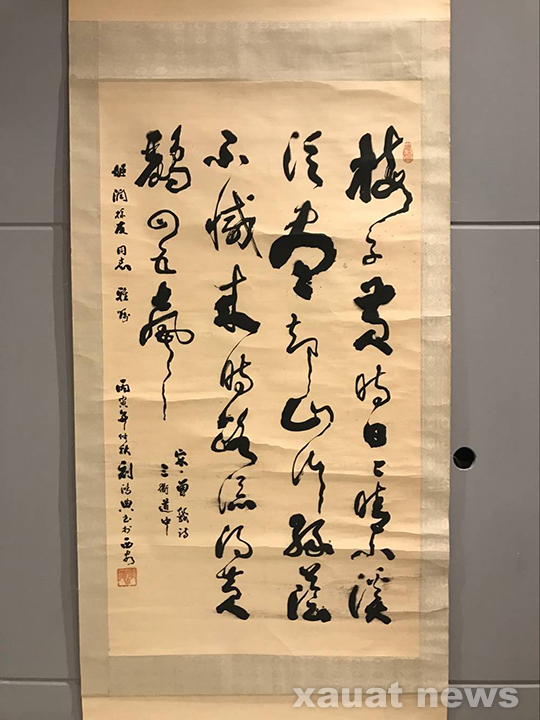 梅子黄时日日晴小溪
泛尽却山行绿蔭
不减来时路添得黄
鹂四五声
宋·曾幾诗
三衢道中
同志 雅
丙寅年仲秋 书于西安
xauat news